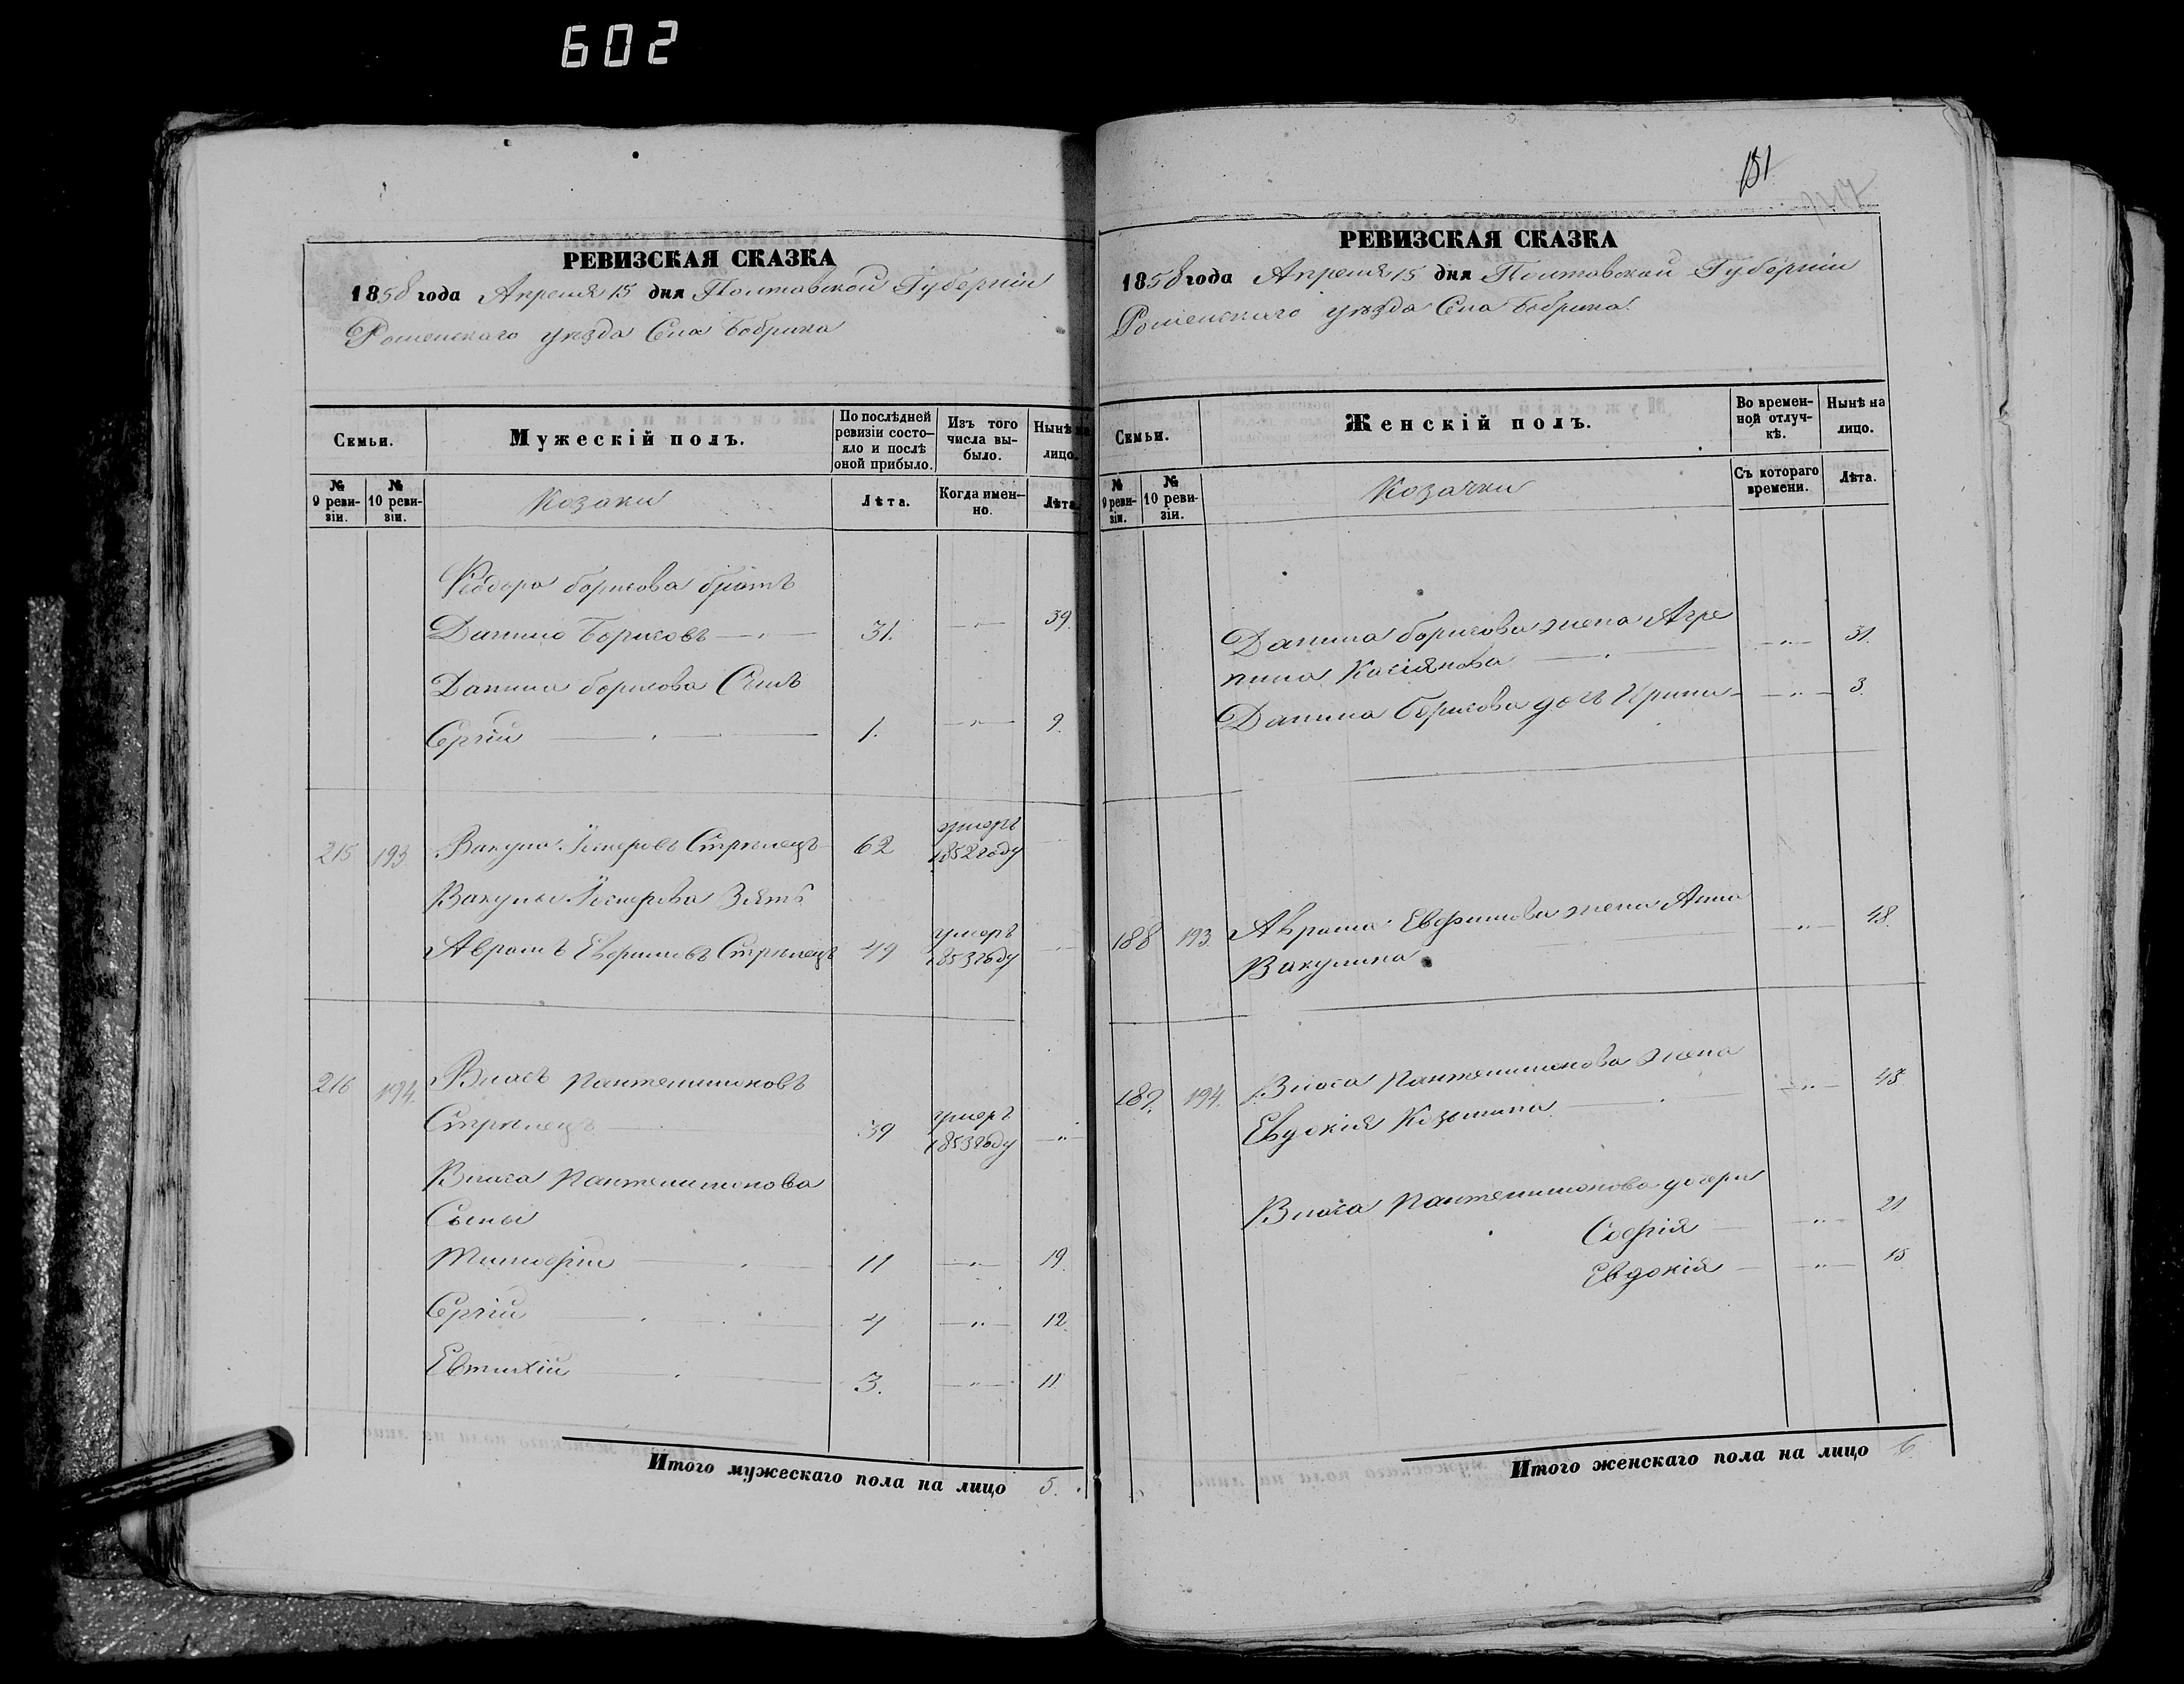 602
РЕВИЗСКАЯ СКАЗКА
1858 года Апреля 15 дня Полтавской Губернiи
Роменскаго уѣзда Села Бобрика
Семьи.
Мужескій полъ.
По послѣдней ревизіи состояло и послѣ оной прибыло.
Изъ того числа выбыло.
Нынѣ на лицо.
№ 9 ревизіи.
№ 10 ревизіи.
Козаки
Лѣта.
Когда именно.
Лѣта.
Федора Борисова братъ
Данило Борисовъ 31. 39.
Данила Борисова Сынъ
Сергій 1. 9.
215 193 Вакула Стрѣлецъ 62 умеръ 1852 году
Вакулы Зять
Аврамъ Стрѣлецъ 49 умеръ 1853 году
216 194. Власъ Пантелимоновъ
Стрѣлецъ 39 умеръ 1853 году
Власа Пантелимонова
Сыны
Тимофій 11 19.
Сергій 4 12.
Евтихій 3. 11
Итого мужескаго пола на лицо 5.
151
РЕВИЗСКАЯ СКАЗКА
1858 года Апреля 15 дня Полтавской Губерніи
Роменскаго уѣзда Села Бобрика.
Семьи.
Женскій полъ.
Во временной отлучкѣ.
Нынѣ на лицо.
№ 9 ревизіи.
№ 10 ревизіи.
Козачки
Съ котораго времени.
Лѣта.
Данила Борисова жена Агре
пина Касіянова 31.
Данила Борисова дочь Ирина 3.
188 193. Аврама жена Анна 48.
Вакулина
189. 194. Власа Пантелимонова жена
Евдокія Козмина
Власа Пантелимонова дочери
Софія 21
Евдокія 15
Итого женскаго пола на лицо 6